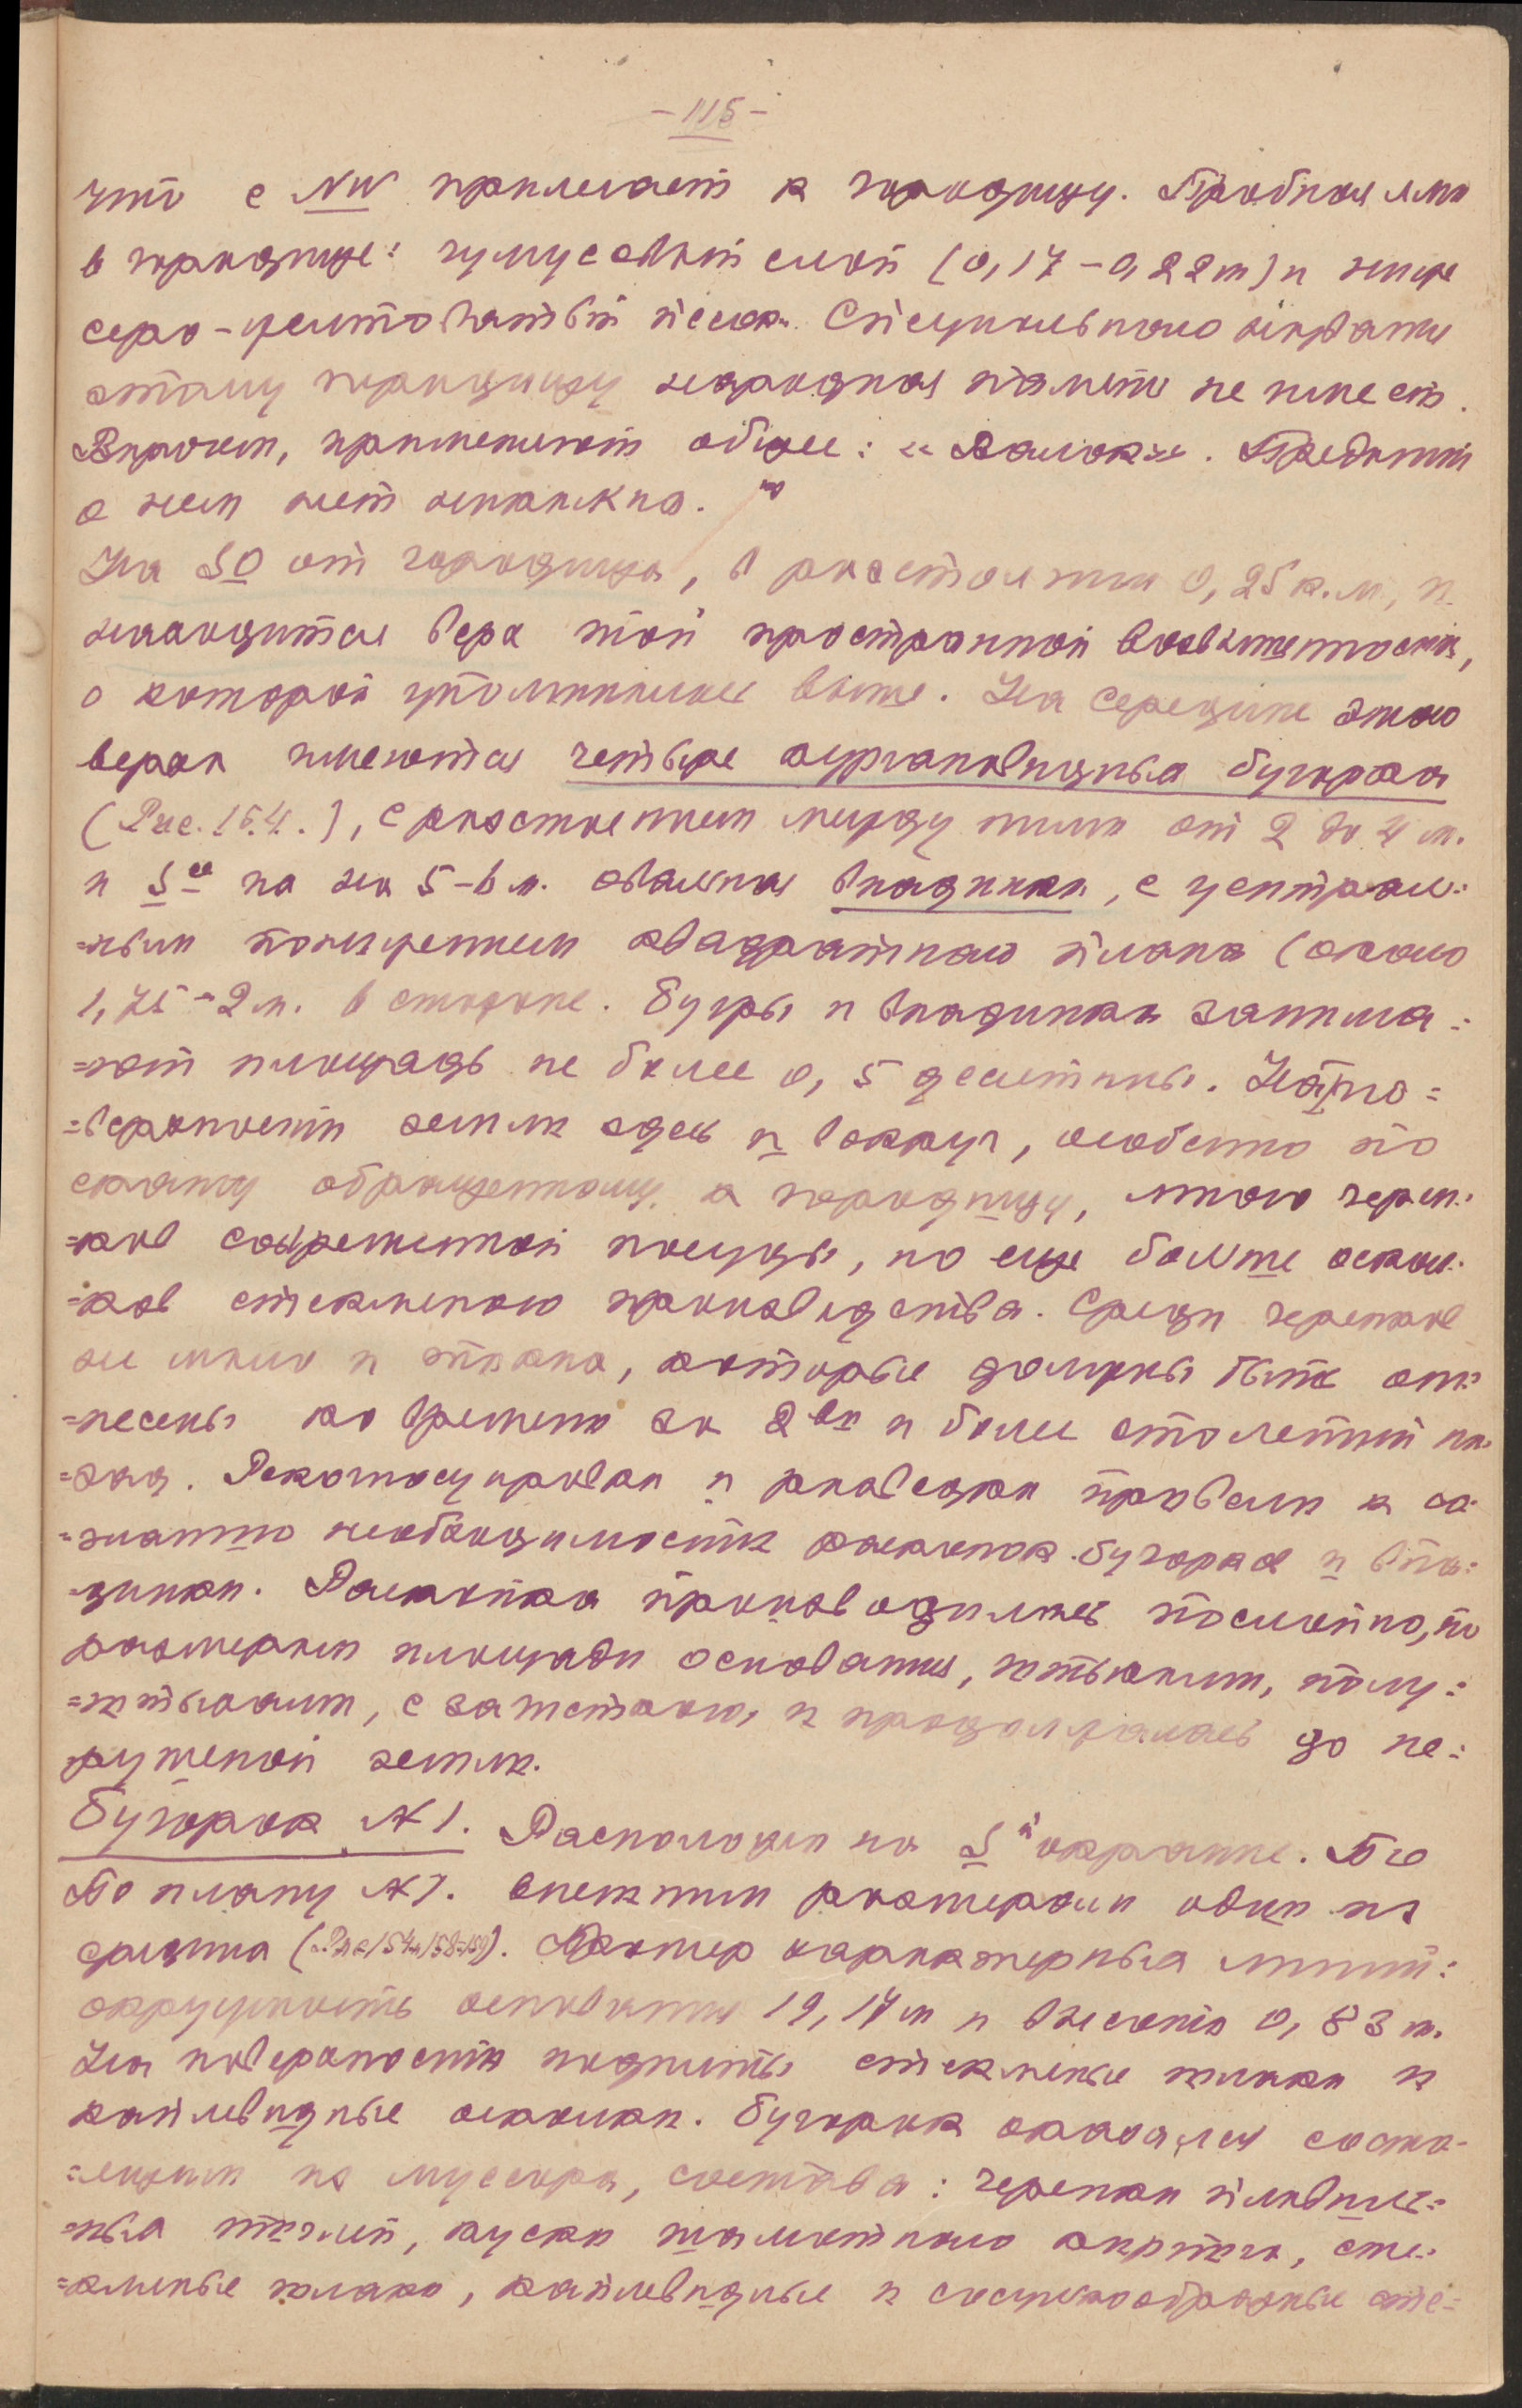 - 115 -
что с NW прилегает к городищу. Пробная яма
в городище: гумусовый слой (0,17 - 0,22 m) и ниже
серо-желтоватый песок. Специального названия
этому городищу народная память не имеет.
Впрочем, применяют общее: "Замок". Преданий
о нем нет никаких.
На SO от городища, в расстоянии 0,25 к.м., и
находится верх той пространной возвышенности,
о которой упоминалось выше. На середине этого
верха имеются четыре кургановидных бугорка
(Рис. 154.), с расстоянием между ними от 2 до 4 м.
и S ее на 5-6 м. овальная впадинка, с централь=
=ным понижением квадратного плана (около
1,75 - 2 м. в стороне. Бугры и впадинка занима=
=ют площадь не более 0,5 десятины. На по=
=верхности земли здесь и вокруг, особенно по
скату обращенному к городищу, много череп=
=ков современной посуды, но еще больше оскол=
=ков стеклянного производства. Среди черепков
не мало и таких, которые должны быть от=
=несены ко времени за 2 ва и более столетий на=
=зад. Рекогносцировка и разведки привели к со=
=знанию необходимости раскопок бугорков и впа=
=динки. Раскопка производилась послойно, по
размерам площади основания, штыхами, полу=
=штыхами, с зачисткою, и продолжалась до не=
=рушеной земли.
Бугорок № 1. Расположен на S й окраине. По
По плану № 1. внешними размерами один из
средних (Рис. 154, 158-159). Размер характерных линий:
окружность основания 19,17 m и высота 0,83 m.
На поверхности подняты стекляные шлаки и
каплевидные осколки. Бугорок оказался состо=
=ящим из мусора, состава: черепки плавиль=
=ных тиглей, куски шамотного кирпича, сте=
=кляные шлаки, каплевидные и сосулькообразные сте=